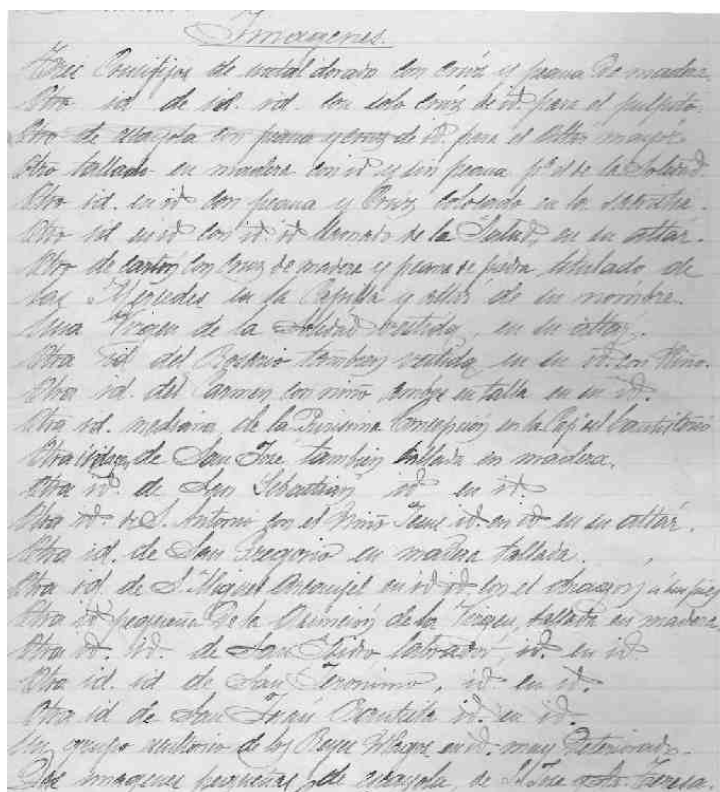 Imagenes.
Tres Crucifijos de metal dorado con cruz y peana de madera.
Otro id. de id. id. con solo cruz de id. para el pulpito.
Otro de escayola con peana y cruz de id. para el Altar mayor.
Otro tallado en madera con id. y sin peana pª el de la Soledad
Otro id. en id con peana y Cruz colocado en la sacristia.
Otro id en id con id. id llamado de la Salud, en su altar.
Otro de carton con Cruz de madera y peana de piedra, titulado de
las Mercedes en la Capilla y altar de su nombre.
Una Virgen de la Soledad vestida, en su altar.
Otra id. del Rosario tambien vestida en su id. con Niño.
Otra id. del Carmen con niño en talla en su id.
Otra id. mediana de la Purisima Concepción en la Capª del bautisterio
Otra de San José tambien tallada en madera.
Otra id. de San Sebastian id en id.
Otra id. de S. Antonio con el Niño Jesus id. en id en su altar.
Otra id. de San Gregorio en madera tallada.
Otra id. de S. Miguel Arcangel en id id con el dragon á sus pies
Otra id pequeña de la Asunción de la Virgen, tallada en madera
Otra id. id. de San Isidro labrador, id. en id
Otra id. id de San Geronimo, id. en id.
Otra id de San Juan Bautista id. en id.
Un grupo de los Reyes Magos en id. muy deteriorado.
Dos imagenes pequeñas, de escayola, de S. José Teresa.